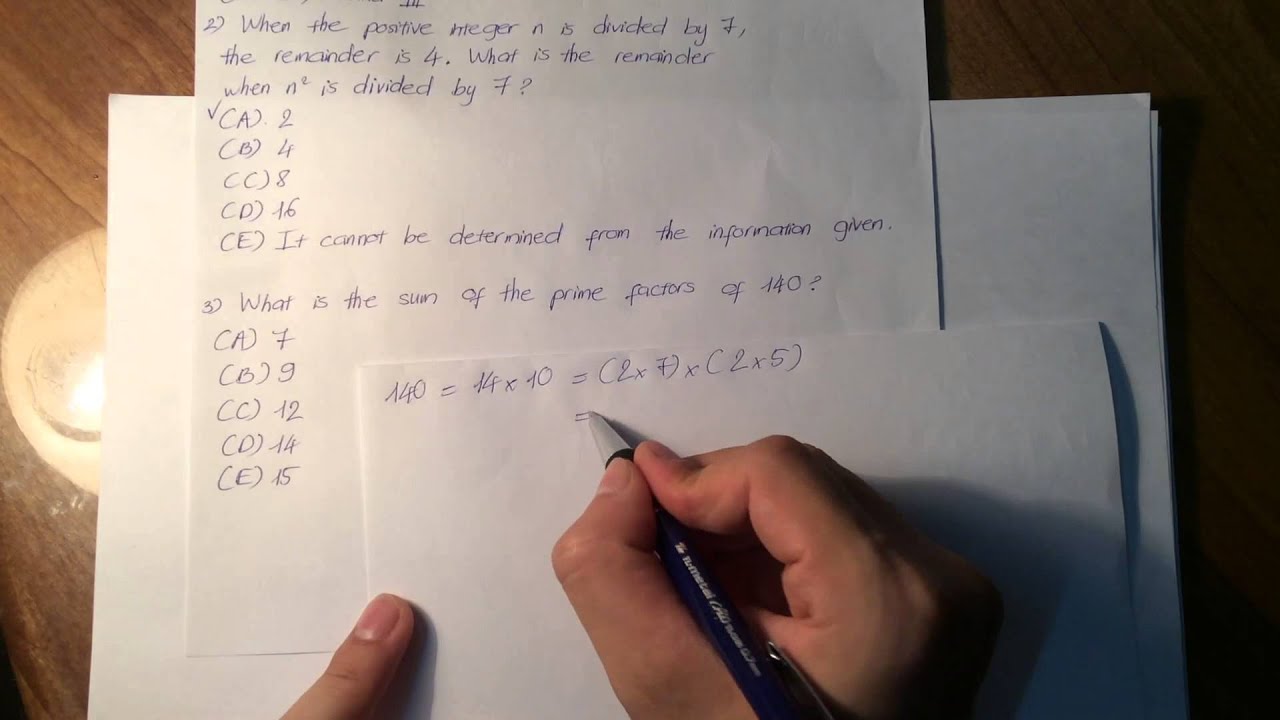 2) When the positive integer n is divided by 7,
the remainder is 4. What is the remainder
when n² is divided by 7?
✓(A). 2
(B) 4
(C) 8
(D) 16
(E) It cannot be determined from the information given.
3) What is the sum of the prime factors of 140?
(A) 7
(B) 9
(C) 12
(D) 14
(E) 15
140 = 14 x 10 = (2x7) x (2x5)
=